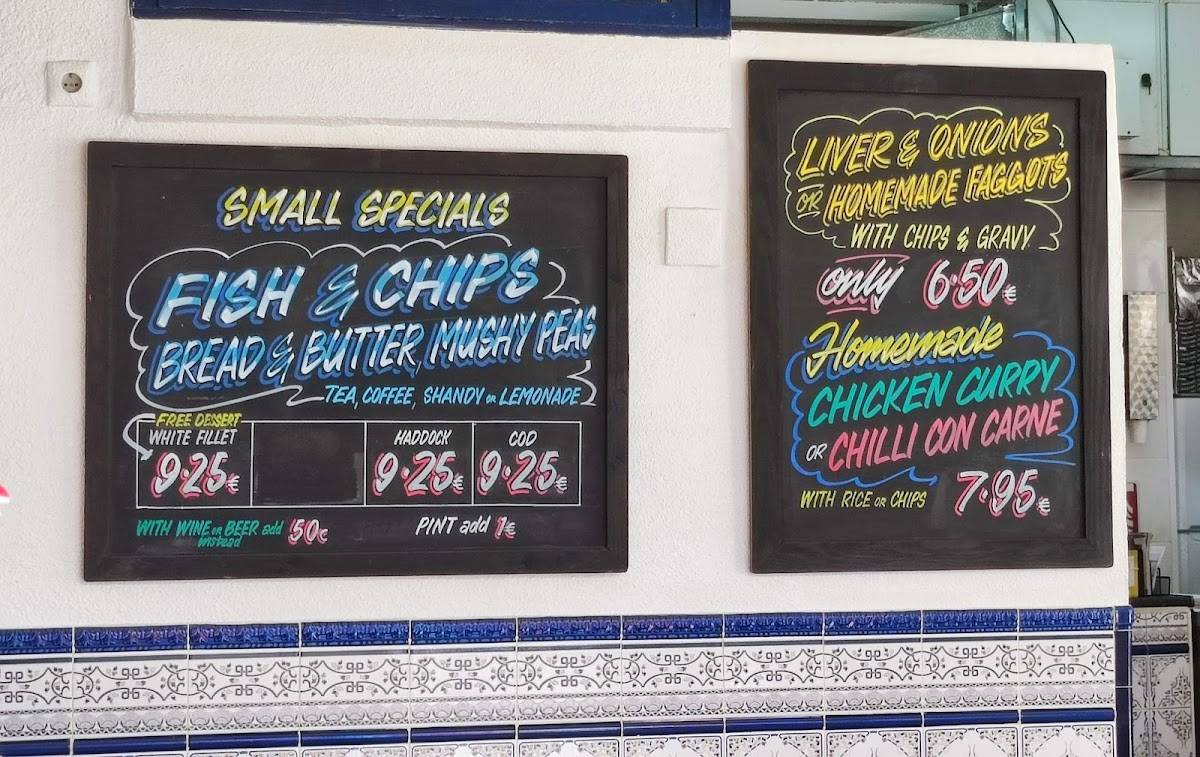 SMALL SPECIALS
FISH & CHIPS
BREAD & BUTTER, MUSHY PEAS
TEA, COFFEE, SHANDY OR LEMONADE
FREE DESSERT
WHITE FILLET
9·25€
HADDOCK
9·25€
COD
9·25€
WITH WINE OR BEER add 50c
instead
PINT add 1€
LIVER & ONIONS
OR HOMEMADE FAGGOTS
WITH CHIPS & GRAVY
only 6·50€
Homemade
CHICKEN CURRY
OR CHILLI CON CARNE
WITH RICE OR CHIPS 7·95€